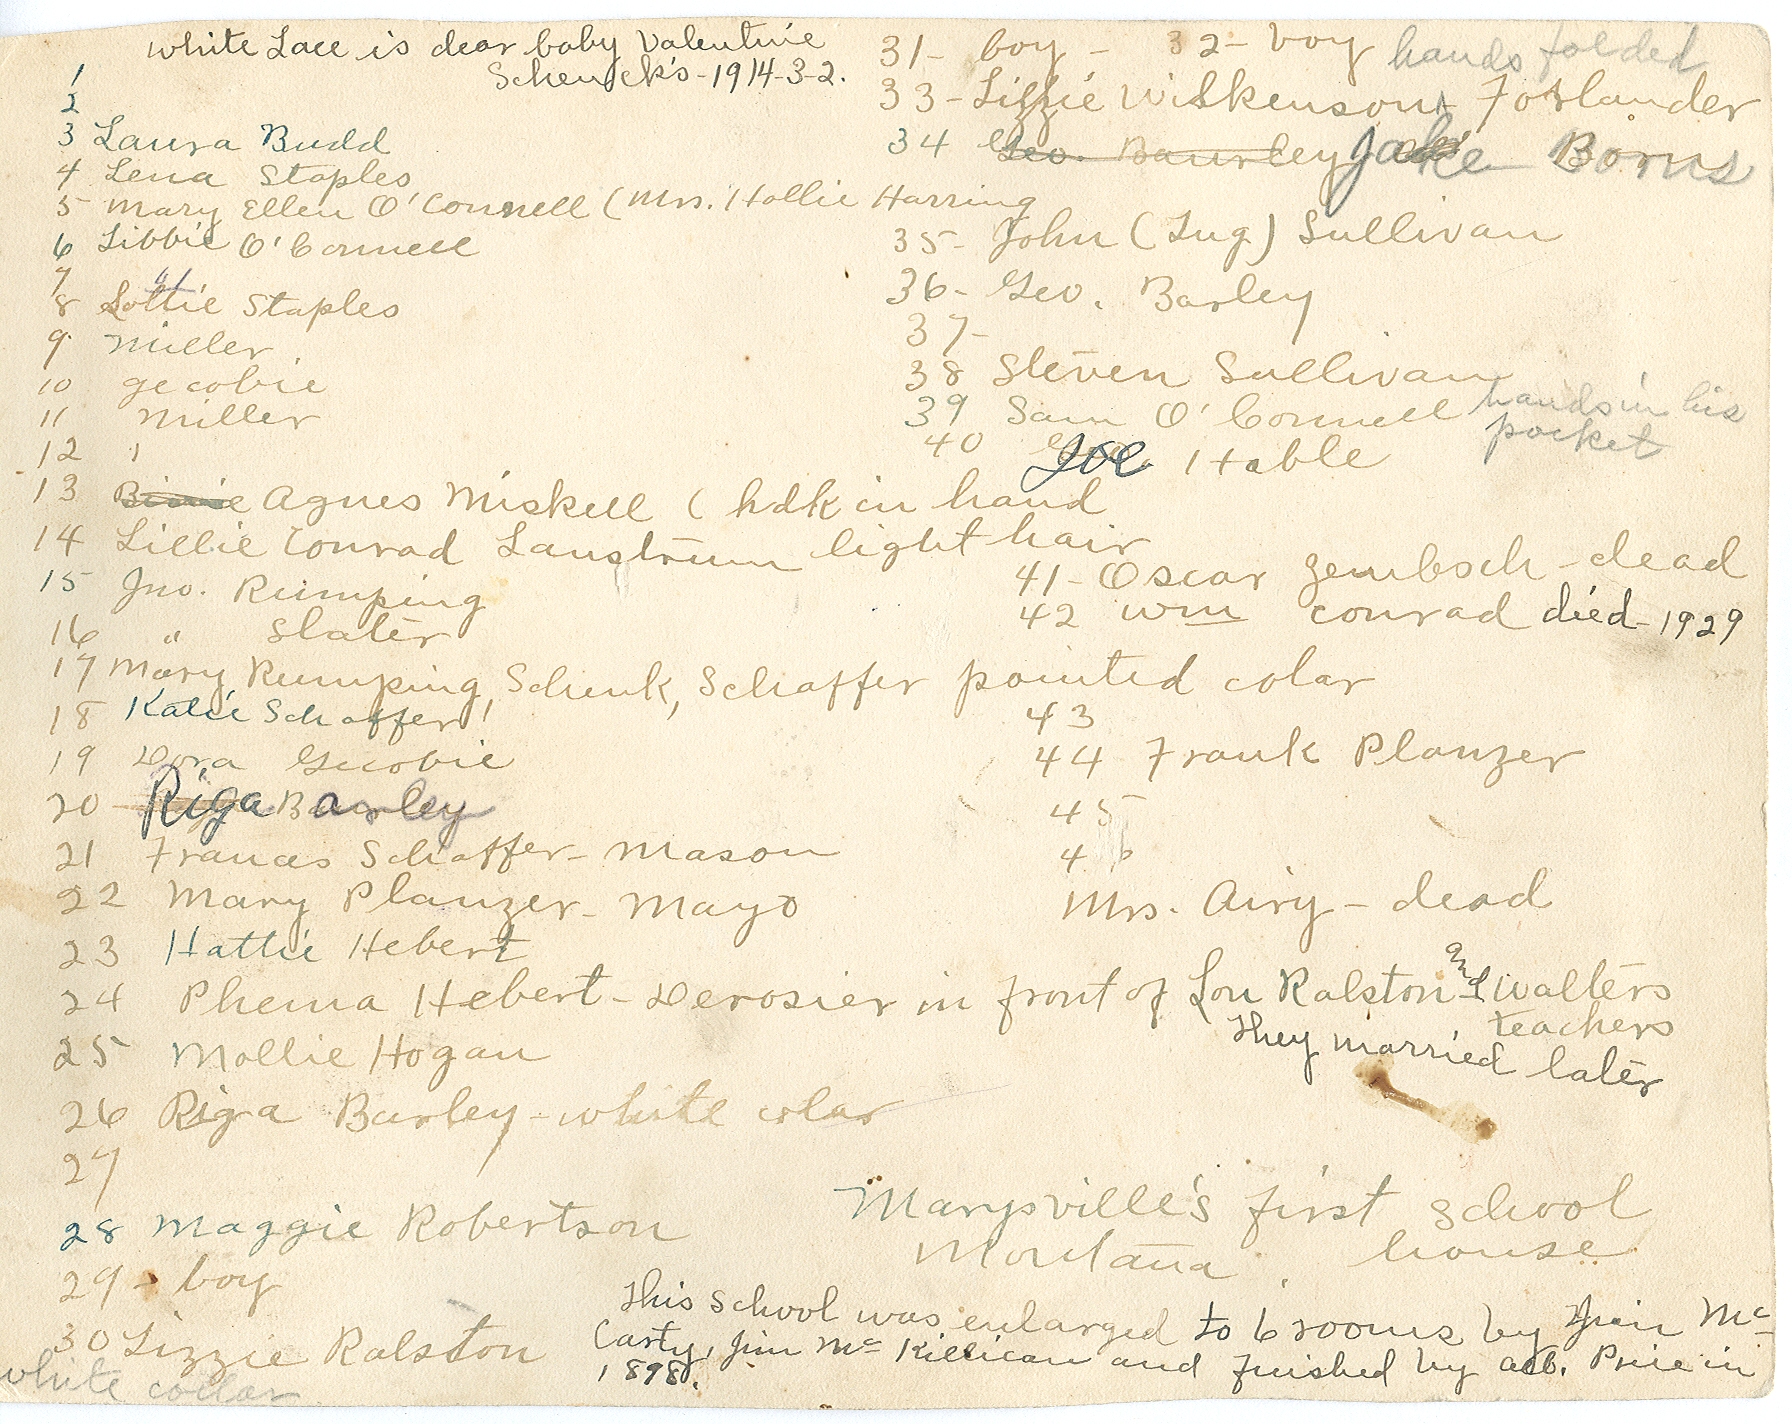 white Lace is dear baby Valentine
Schenck's-1914-3-2.
1
2
3 Laura Budd
4 Lena Staples
5 Mary Ellen O'Connell (Mrs. Hollie Harring
6 Libbie O'Connell
7 "
8 Lottie Staples
9 Miller
10 gecobie
11 Miller
12
13 Agnes Miskell ( hdk in hand
14 Lillie Conrad Lanstrum light hair
15 Jno. Rumping
16 " Slater
17 Mary Rumping, Schenk, Schaffer pointed colar
18 Katie Schaffer
19 Dora Gecobie
20 - Riga Barley
21 Frances Schaffer - Mason
22 Mary Planzer - Mayo
23 Hattie Hebert
24 Phema Hebert - Derosier in front of Lou Ralston and Walters
teachers
They married later
25 Mollie Hogan
26 Riga Barley - white colar
27
28 Maggie Robertson
29 - boy
30 Lizzie Ralston
white collar
31 - boy - 32 - boy hands folded
33 - Lizzie Wilkenson Forlander
34 Geo. Baurley Jake Borns
35 - John (Lug) Sullivan
36 - Geo. Barley
37 -
38 Steven Sullivan
39 Sam O'Connell hands in his
pocket
40 Joe Hable
41 - Oscar Zembsch - dead
42 Wm Conrad died - 1929
43
44 Frank Planzer
45
46
Mrs. Airy - dead
Marysville's first school
Montana. house.
This school was enlarged to 6 rooms by Jim Mc
Carty, Jim Mc Killican and finished by Price in
1898.